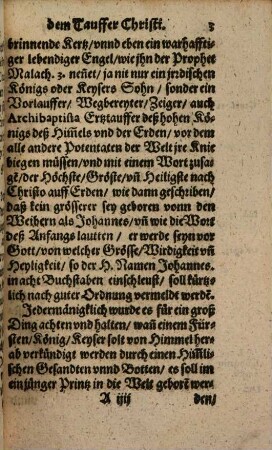 dem Tauffer Christi. 3
brinnende Kertz/vnnd eben ein warhaffti-
ger lebendiger Engel/wie jhn der Prophet
Malach. 3. neñet/ja nit nur ein jrdischen
Königs oder Keysers Sohn / sonder ein
Vorlauffer/ Wegbereyter/Zeiger/ auch
Archibaptista Ertztauffer deß hohen Kö-
nigs deß Him̃els vnd der Erden/ vor dem
alle andere Potentaten der Welt jre Knie
biegen müssen/vnd mit einem Wort zusa-
gẽ/der Höchste/Gröste/vñ Heiligste nach
Christo auff Erden/ wie dann geschriben/
daß kein grösserer sey geboren vonn den
Weibern als Johannes/vñ wie die Wort
deß Anfangs lautten / er werde seyn vor
Gott/von welcher Grösse/Wirdigkeit vñ
Heyligkeit / so der H. Namen Johannes.
in acht Buchstaben einschleust/ soll kürtz-
lich nach guter Ordnung vermeldt werdẽ.
Jedermänigklich wurde es für ein groß
Ding achten vnd halten/ wañ einem Für-
sten/König/Keyser solt von Himmel her-
ab verkündigt werden durch einen Him̃li-
schen Gesandten vnnd Botten/ es soll im
ein jünger Printz in die Welt geborẽ wer-
A iiij den/